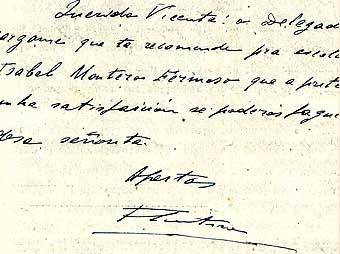 Querido Vicente: o Delegad
argame que te recomende pra escola
Isabel Monteros Fermoso que a preten
nha satisfaición se poderas fague
desa señorita.
Apertas